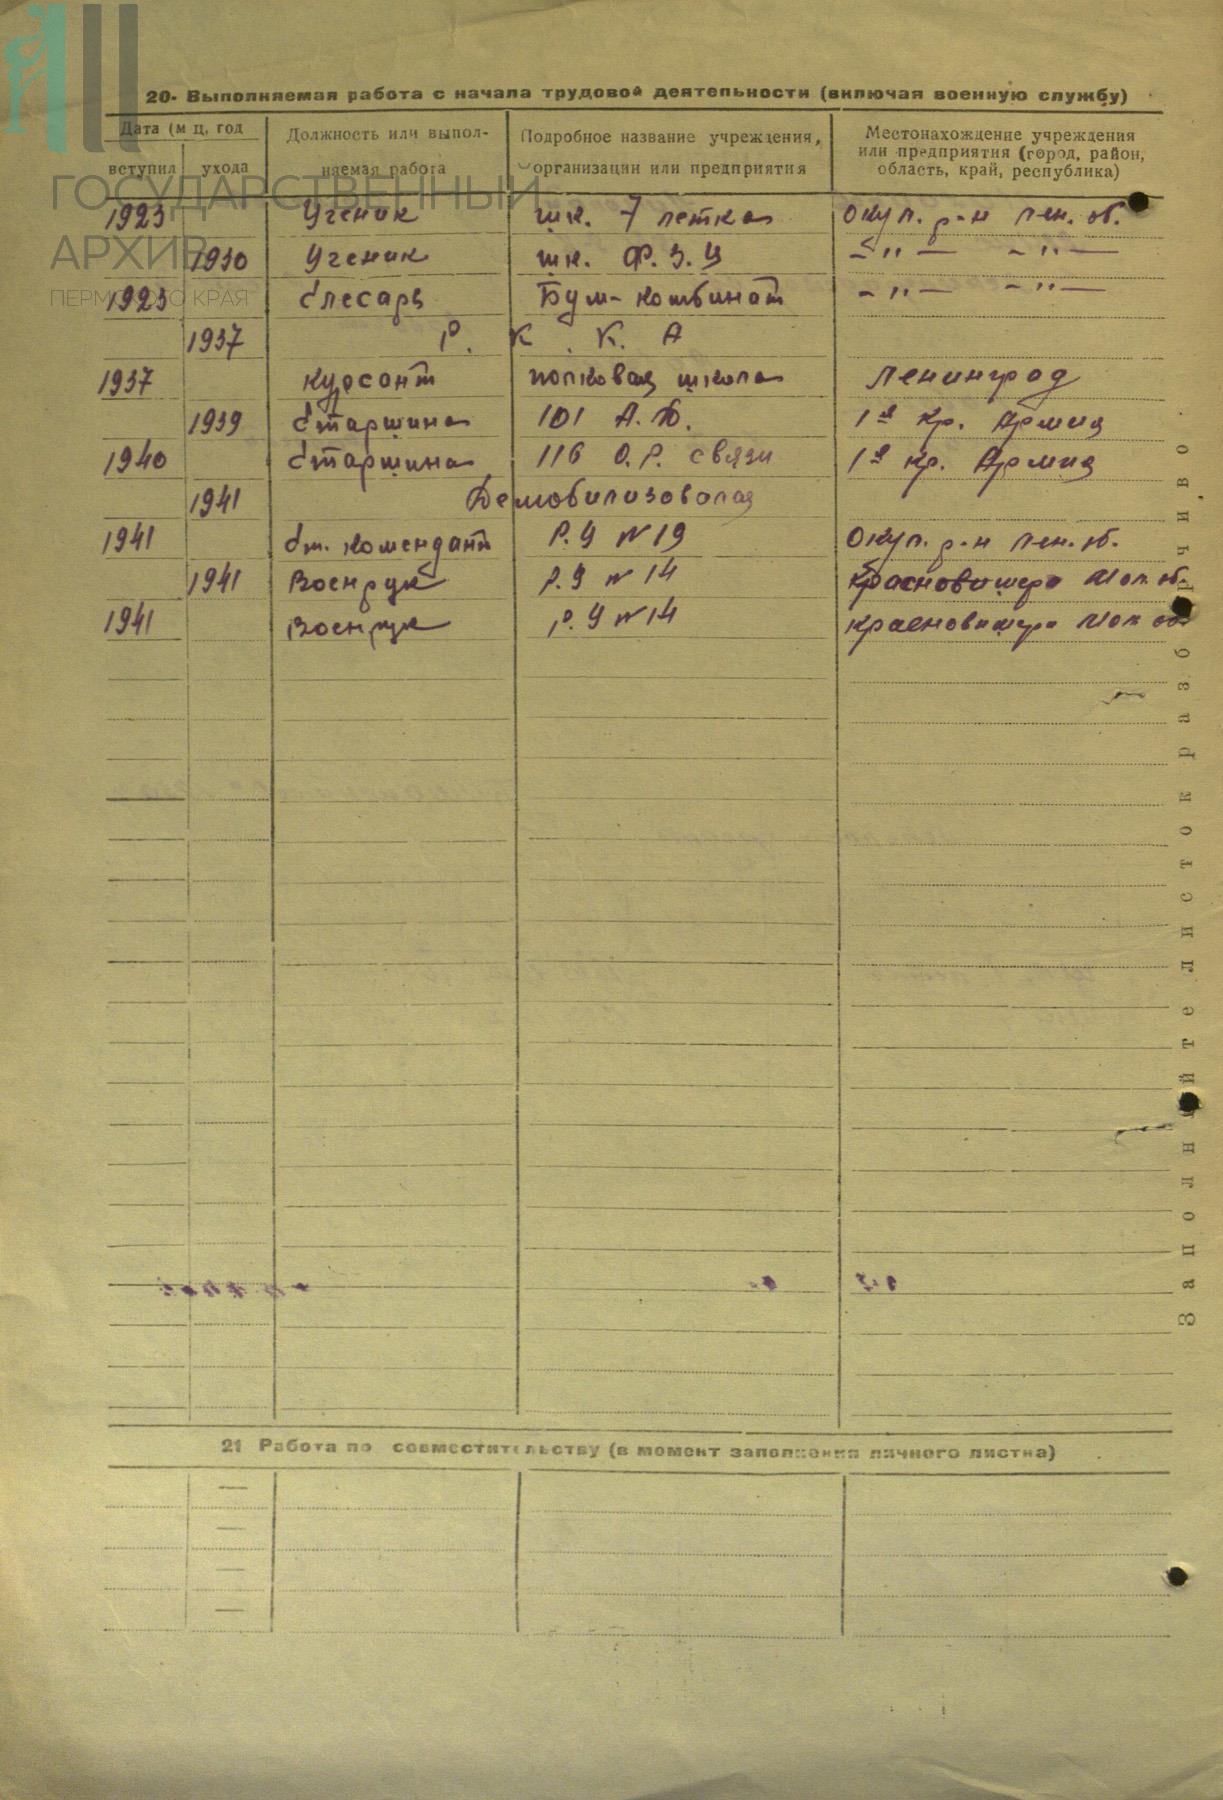 ГОСУДАРСТВЕННЫЙ
АРХИВ
ПЕРМСКОГО КРАЯ
20- Выполняемая работа с начала трудовой деятельности (включая военную службу)
Дата (м ц, год
вступил ухода
Должность или выпол-
няемая работа
Подробное название учреждения,
организации или предприятия
Местонахождение учреждения
или предприятия (город, район,
область, край, республика)
1923 Ученик шк. 7 летка Окул. р-н Лен. об.
1930 Ученик шк. Ф.З.У — " — — " —
1923 Слесарь Бум-комбинат — " — — " —
1937 Р. К. К. А
1937 Курсант полковая школа Ленинград
1939 Старшина 101 А.Б. 1я Кр. Армия
1940 Старшина 116 О.Р. связи 1я кр. Армия
1941 Демобилизовался
1941 Ст. комендант Р.У №19 Окул. р-н Лен. об.
1941 Военрук Р.У №14 Красновишера Мол об.
1941 Военрук Р.У №14 Красновишера Мол об
21 Работа по совместительству (в момент заполнения личного листка)
— 
—
—
—
Заполняйте листок разборчиво